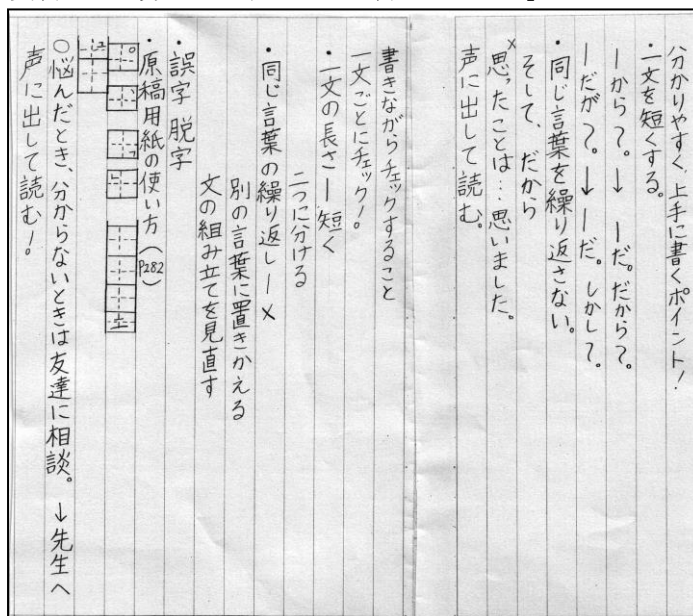 分かりやすく、上手に書くポイント!
・一文を短くする。
ーから〜。→ ーだ。だから〜。
ーだが〜。→ ーだ。しかし〜。
・同じ言葉を繰り返さない。
そして、だから
×思ったことは…思いました。
声に出して読む。
書きながらチェックすること
一文ごとにチェック!
・一文の長さ ー 短く
二つに分ける
・同じ言葉の繰り返し ー ×
別の言葉に置きかえる
文の組み立てを見直す
・誤字 脱字
・原稿用紙の使い方(P282)
○悩んだとき、分からないときは友達に相談。→先生へ
声に出して読む!